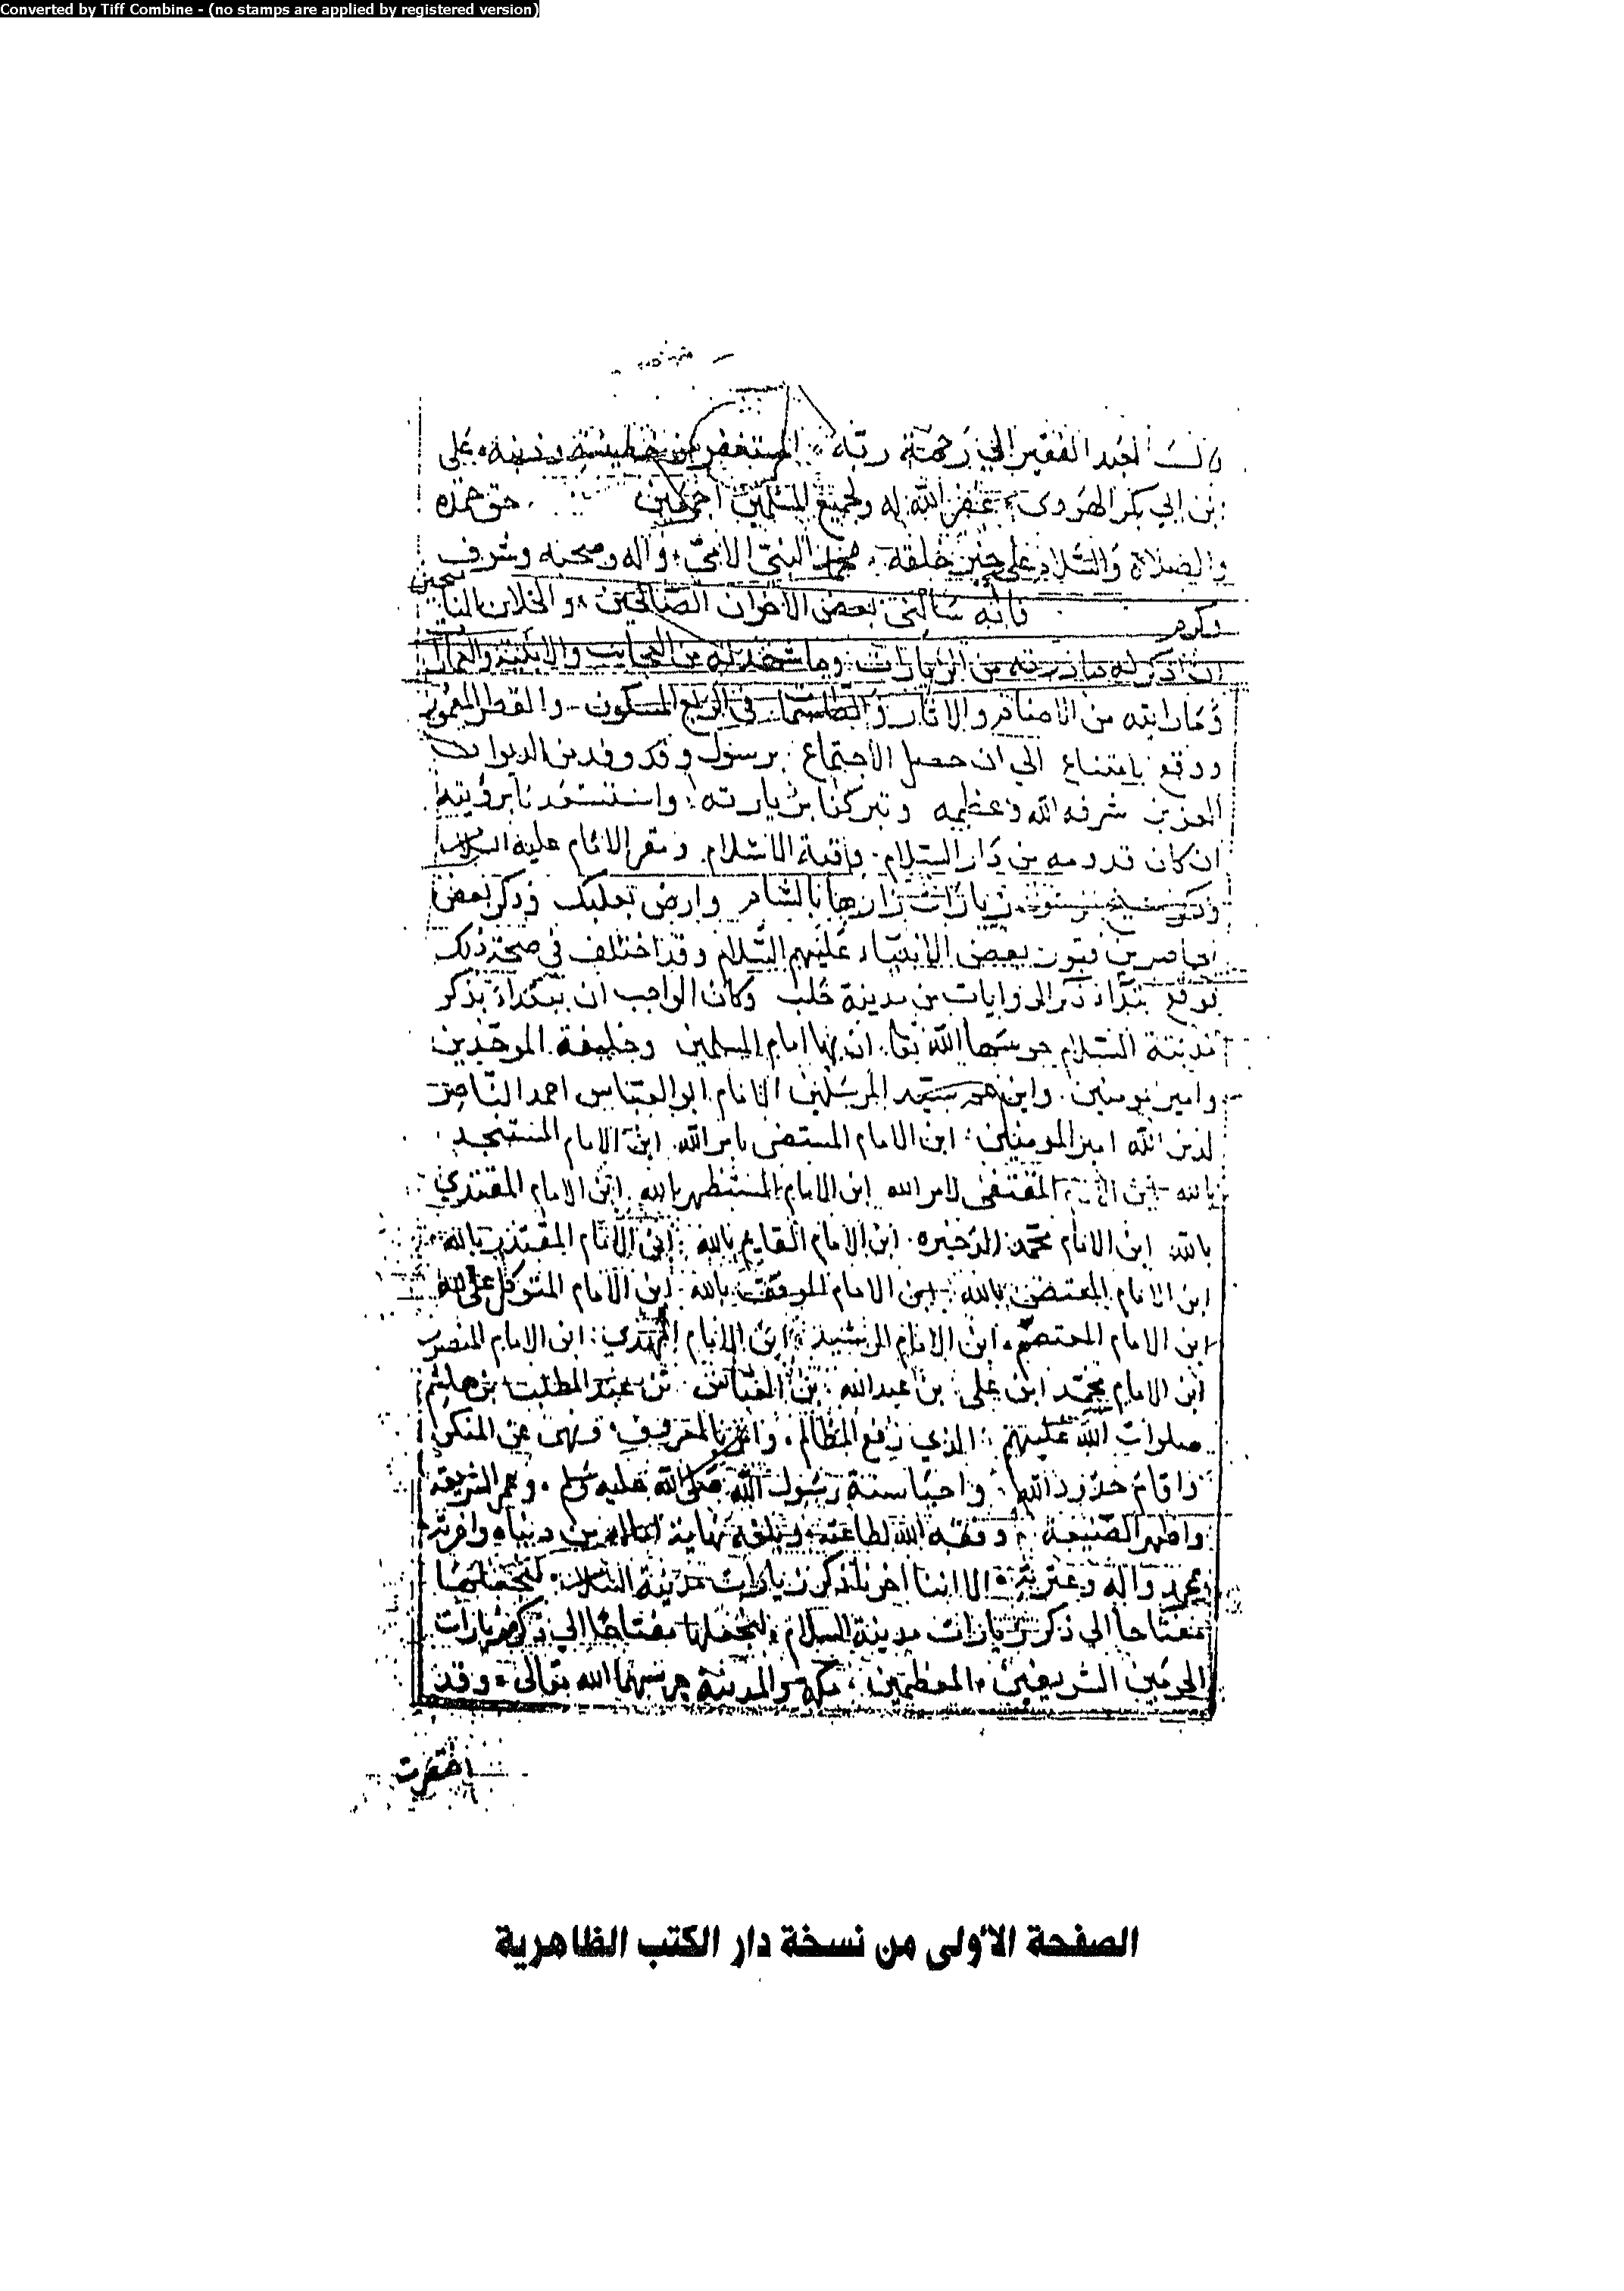 Converted by Tiff Combine - (no stamps are applied by registered version)
العبد الفقير الى رحمة ربه المستغفر من خطيئته وذنبه على
بن ابي بكر الهروى غفر الله له ولجميع المسلمين اجمعين حق حمده
والصلاة والسلام على خير خلقه محمد النبي الامي واله وصحبه وشرف
وكرم فانه سالنى بعض الاخوان الصالحين والخلان الناصحين
ان اذكر له مازرته من الزيارات وما شهدته من العجايب والابنية والعمارات
وما رايته من الاصنام والاثار والطلسمات في الربع المسكون والقطر المعمور
ووقع بامتناع الى ان حصل الاجتماع برسول وقد وفد من الديوان
العزيز شرفه الله وعظمه وتبركنا بزيارته واستسعدنا برؤيته
ان كان قدومه من دار السلام وقبة الاسلام ومقر الامام عليه السلام
زيارات زارها بالشام وارض بعلبك وذكر بعض
الحاضرين قبور بعض الانبياء عليهم السلام وقد اختلف في صحة ذلك
فوقع من مدينة حلب وكان الواجب ان نبتداء بذكر
مدينة السلام حرسها الله تعا اذ بها امام المسلمين وخليفة الموحدين
وامير وابن سيد المرسلين الامام ابو العباس احمد الناصر
لدين الله امير المومنين ابن الامام المستضى بامر الله ابن الامام المستنجد
بالله ابن الامام المقتفى لامر الله ابن الامام المستظهر بالله ابن الامام المقتدي
بالله ابن الامام محمد الذخيره ابن الامام القايم بالله ابن الامام المقتدر بالله
ابن الامام المعتضد بالله ابن الامام الموفق بالله ابن الامام المتوكل على الله
ابن الامام المعتصم ابن الامام الرشيد ابن الامام المهتدي ابن الامام المنصور
ابن الامام محمد ابن على بن عبدالله بن العباس بن عبد المطلب بن هاشم
صلوات الله عليهم الذي رفع المظالم وامر بالمعروف ونهى عن المنكر
واقام حدود الله واحيا سنة رسول الله صلى الله عليه وسلم وعمر الشريعة
واظهر الصنيعة وفقه الله لطاعته وبلغه نهاية اماله من دنياه واخرته
بمحمد واله وعترته الا اننا اخرنا ذكر زيارات مدينة السلام لنجعلها
مفتاحا الى ذكر زيارات مدينة السلام ولنجعلها مفتاحا الى ذكر زيارات
الحرمين الشريفين المعظمين مكة والمدينة حرسهما الله تعالى وقد
اختصرت
الصفحة الأولى من نسخة دار الكتب الظاهرية